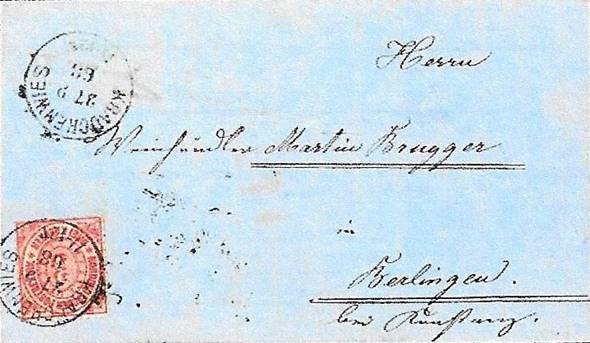 KRAUCHENWIES
27 9
68
Herrn
Weinhändler Martin Brugger
in
Berlingen.
bei Konstanz.
KRAUCHENWIES
27
68